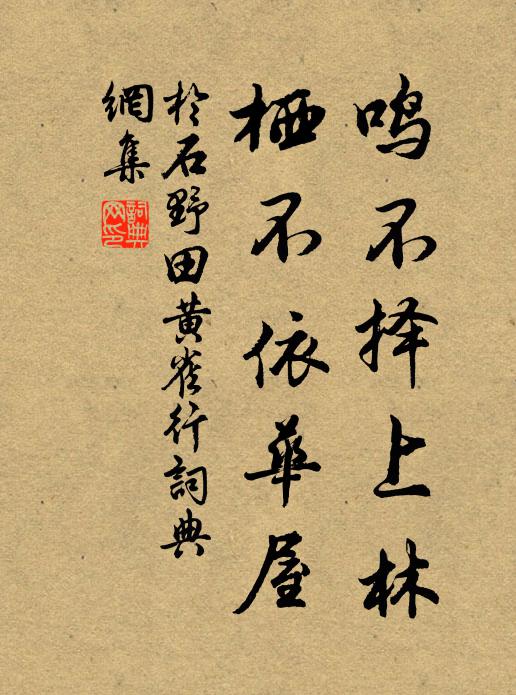 鸣不择上林
栖不依华屋
於石野田黄雀行詞典
網集
詞典
网印